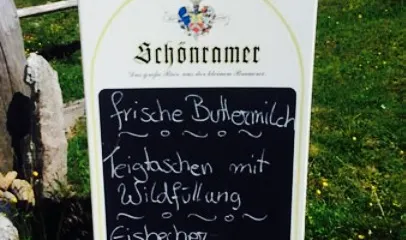 Schönramer
Das große Bier aus der kleinen Brauerei
frische Buttermilch
Teigtaschen mit
Wildfüllung
Eisbecher